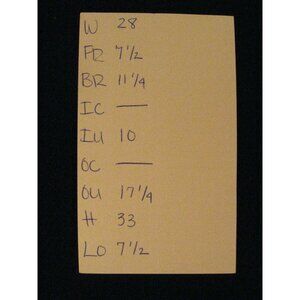 W 28
FR 7 1/2
BR 11 1/4
IC —
IU 10
OC —
OU 17 1/4
H 33
LO 7 1/2